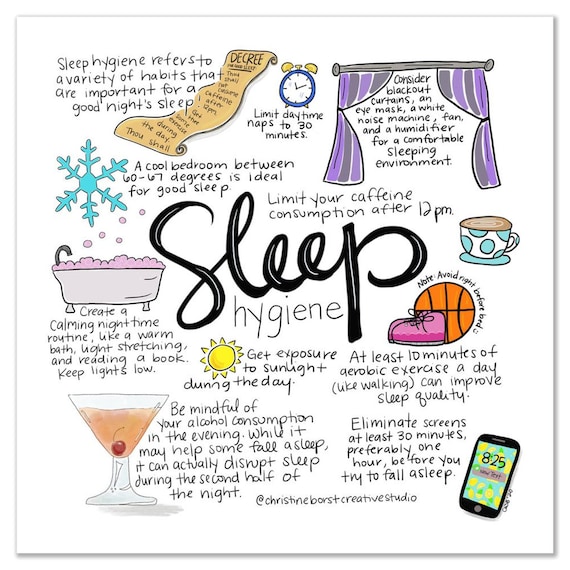 Sleep hygiene refers to
a variety of habits that
are important for a
good night's sleep
DECREE
Thou
shall
not
consume
caffeine
after
12pm.
Get
some
exercise
during
the day.
Thou shall
Limit daytime
naps to 30
minutes.
Consider
blackout
curtains, an
eye mask, a white
noise machine, fan,
and a humidifier
for a comfortable
sleeping
environment.
A cool bedroom between
60-67 degrees is ideal
for good sleep.
Limit your caffeine
consumption after 12pm.
Sleep
hygiene
Note: Avoid right before bed
Create a
calming nighttime
routine, like a warm
bath, light stretching,
and reading a book.
Keep lights low.
Get exposure
to sunlight
during the day.
At least 10 minutes of
aerobic exercise a day
(like walking) can improve
sleep quality.
Be mindful of
your alcohol consumption
in the evening. While it
may help some fall asleep,
it can actually disrupt sleep
during the second half of
the night.
Eliminate screens
at least 30 minutes,
preferably one
hour, before you
try to fall asleep.
8:25
new text
@christineborstcreativestudio